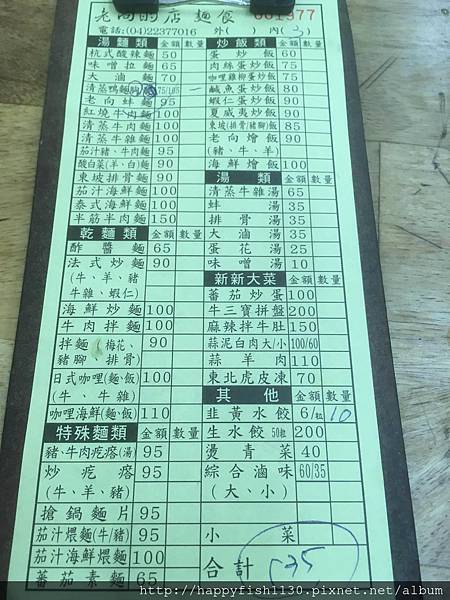 老向的店 麵食 661377
電話:(04)22377016 外( ) 內(3)
湯麵類 金額 數量
杭式酸辣麵 50
味噌拉麵 65
大滷麵 65
清蒸鴨麵 75/105
老向蚌麵 95
紅燒牛肉麵 100
清蒸牛肉麵 100
清蒸牛雜麵 100
茄汁豬、牛肉麵 95
酸白菜(羊、白)麵 90
東坡排骨麵 90
茄汁海鮮麵 100
泰式海鮮麵 100
半筋半肉麵 150
乾麵類 金額 數量
酢醬麵 65
法式炒麵 90
(牛、羊、豬
牛雜、蝦仁)
海鮮炒麵 100
牛肉拌麵 100
拌麵(梅花、 90
豬腳、排骨)
日式咖哩(麵、飯) 100
(牛、牛雜)
咖哩海鮮(麵、飯) 110
特殊麵類 金額 數量
豬、牛肉疙瘩(湯) 95
炒疙瘩 95
(牛、羊、豬)
搶鍋麵片 95
茄汁煨麵(牛/豬) 95
茄汁海鮮煨麵 100
蕃茄素麵 65
炒飯類 金額 數量
蛋炒飯 60
肉絲蛋炒飯 75
咖哩雞柳蛋炒飯 75
鹹魚蛋炒飯 80
蝦仁蛋炒飯 90
夏威夷炒飯 90
東坡(排骨/豬腳)飯 85
老向燴飯 90
(豬、牛、羊)
海鮮燴飯 100
湯類 金額 數量
清蒸牛雜湯 65
蚌湯 35
排骨湯 35
大滷湯 35
蛋花湯 25
味噌湯 10
新新大菜 金額 數量
蕃茄炒蛋 100
牛三寶拼盤 200
麻辣拌牛肚 150
蒜泥白肉大/小 100/60
蒜羊肉 110
東北虎皮凍 70
其他 金額 數量
韭黃水餃 6/粒 10
生水餃50粒 200
燙青菜 40
綜合滷味 60/35
(大、小)
小菜
合計 235
http://happyfish1130.pixnet.net/album